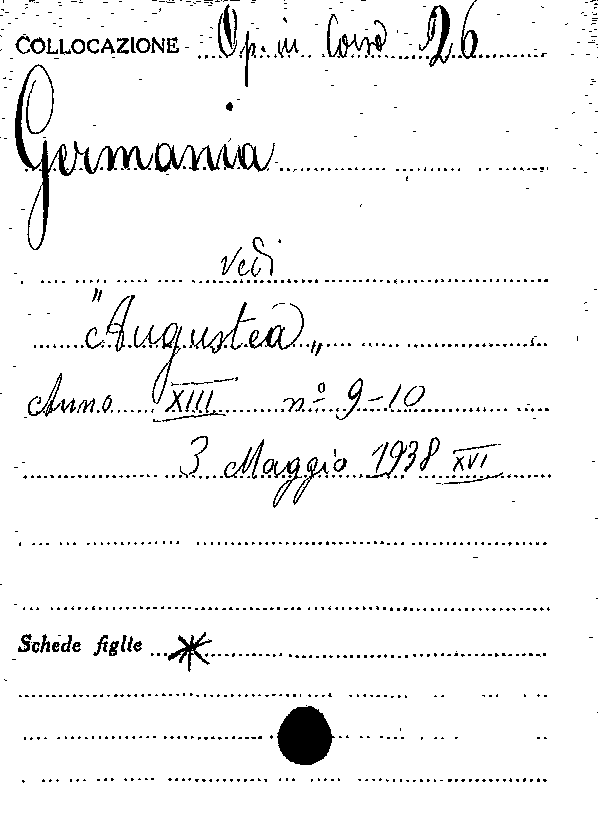 COLLOCAZIONE Op. in Corso 26
Germania
vedi
"Augustea"
Anno XIII nº 9-10
3 Maggio 1938 XVI
Schede figlie *